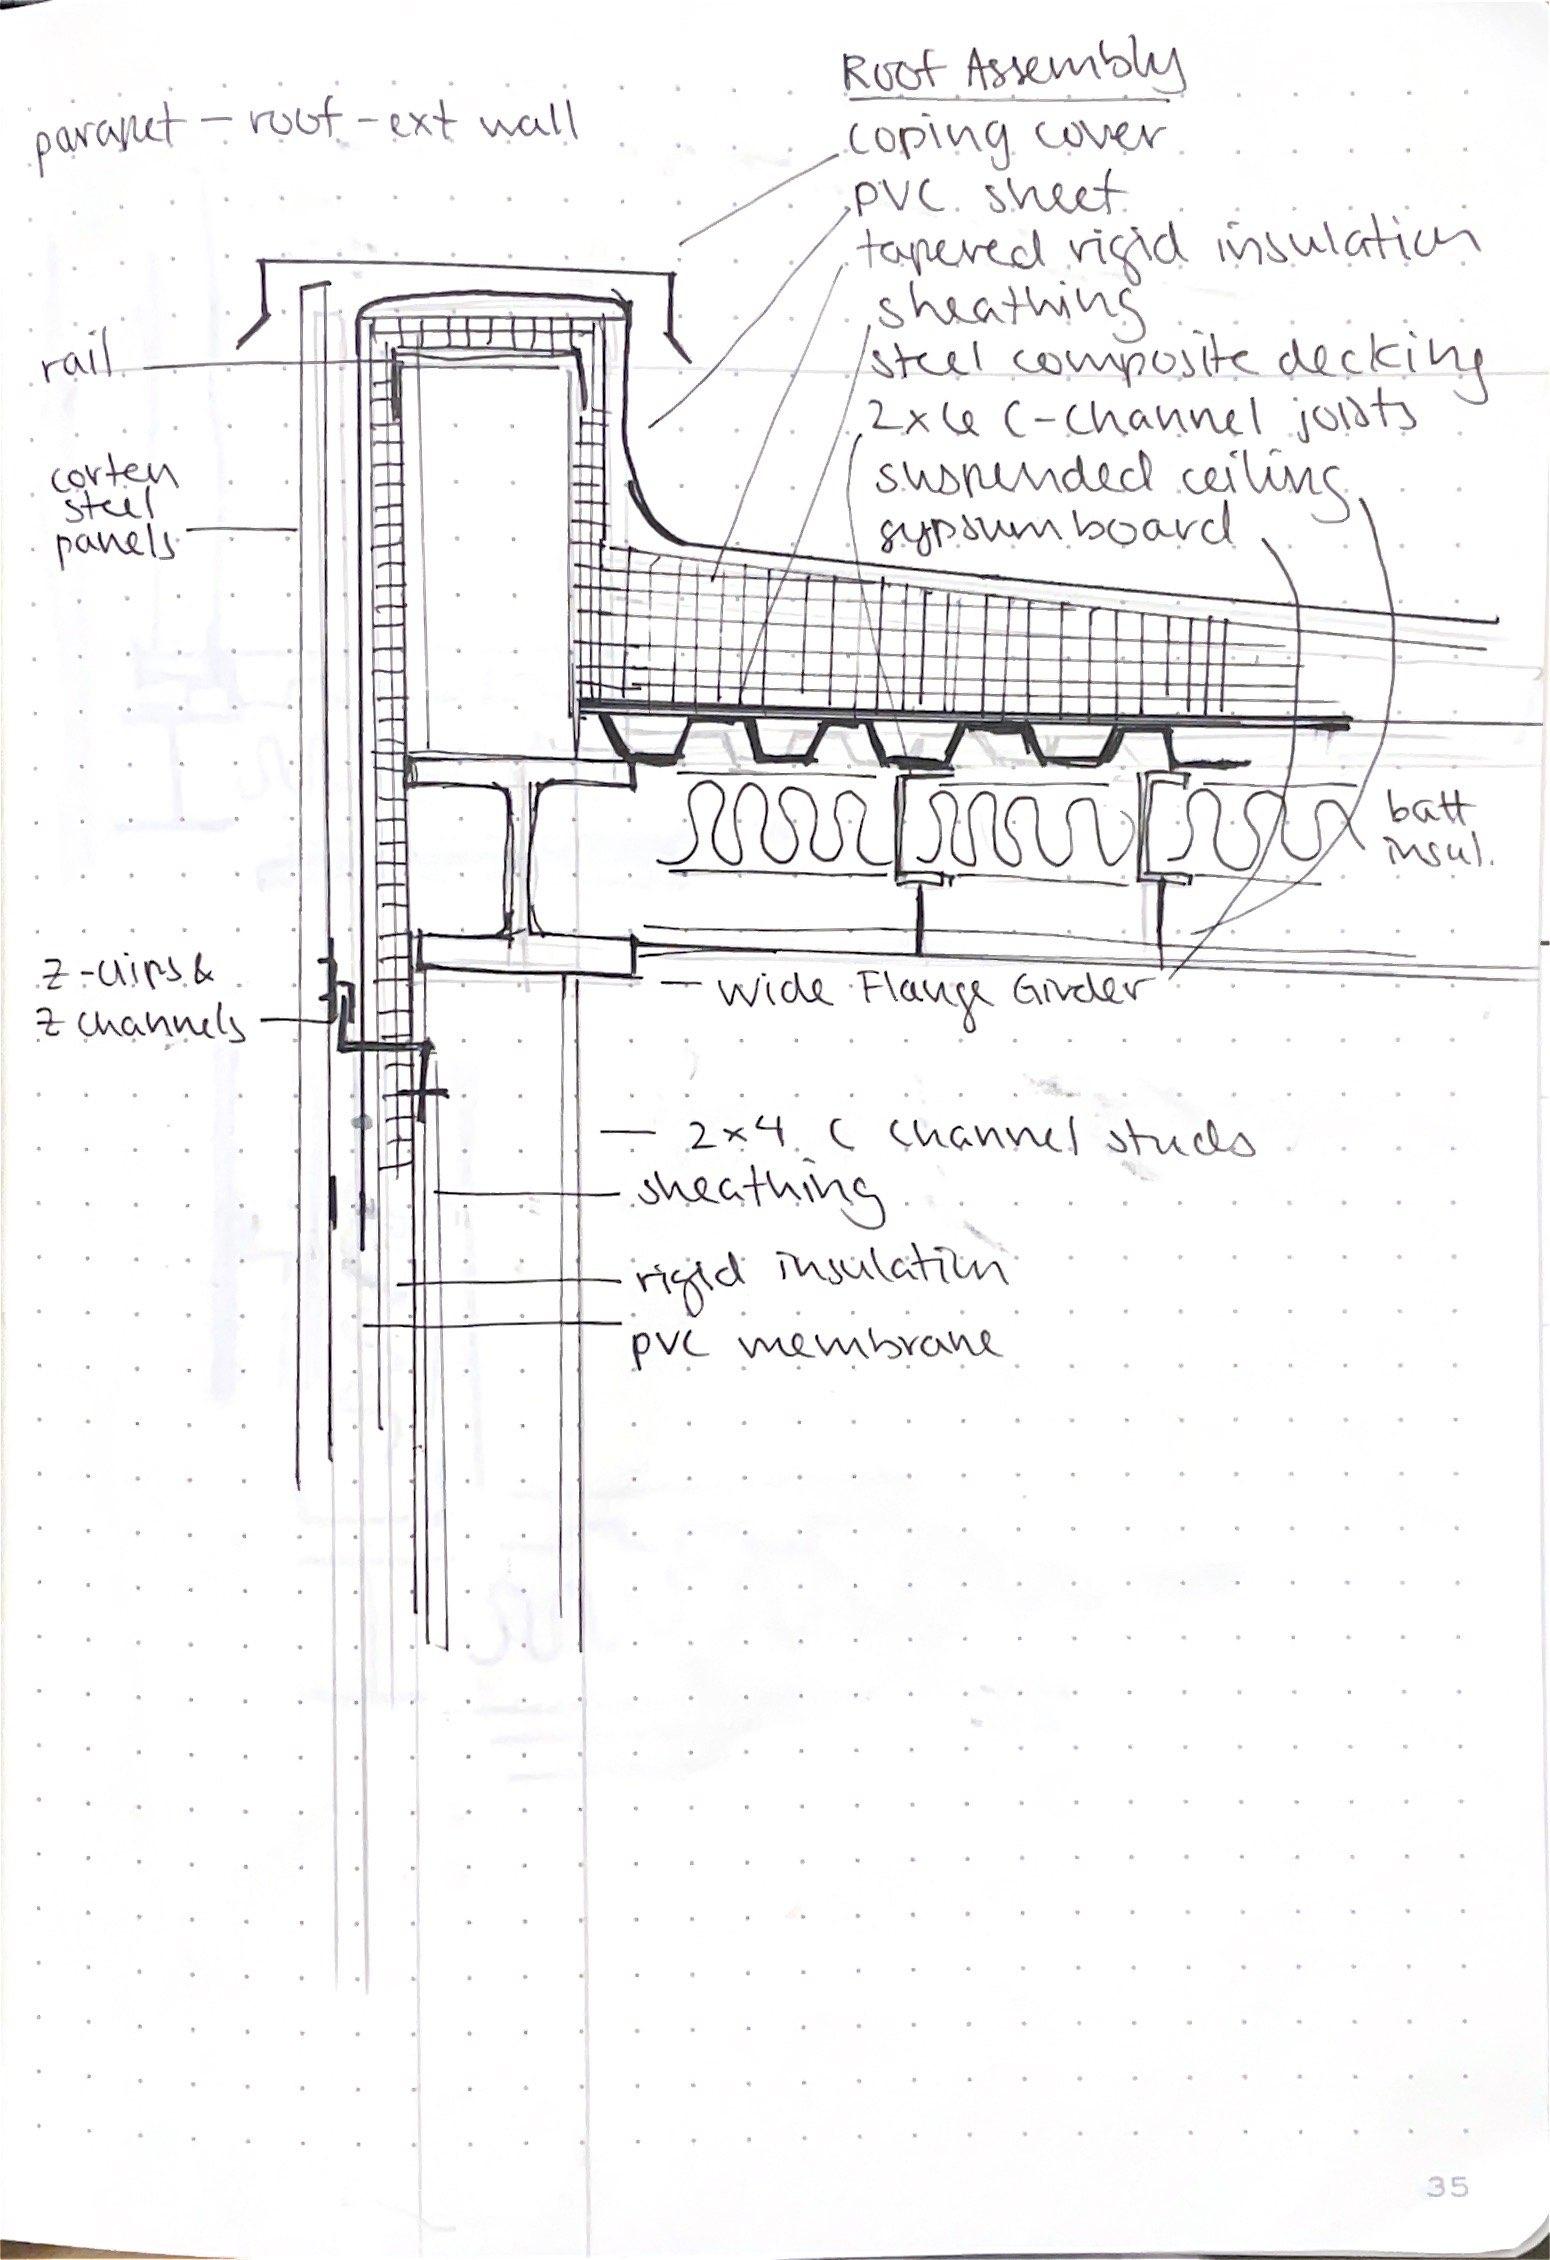 parapet - roof - ext wall
Roof Assembly
coping cover
PVC sheet
tapered rigid insulation
sheathing
steel composite decking
2x6 C-channel joists
suspended ceiling
gypsum board
rail
corten
steel
panels
batt
insul.
Z-clips &
Z channels
- Wide Flange Girder
- 2x4 C channel studs
sheathing
rigid insulation
PVC membrane
35